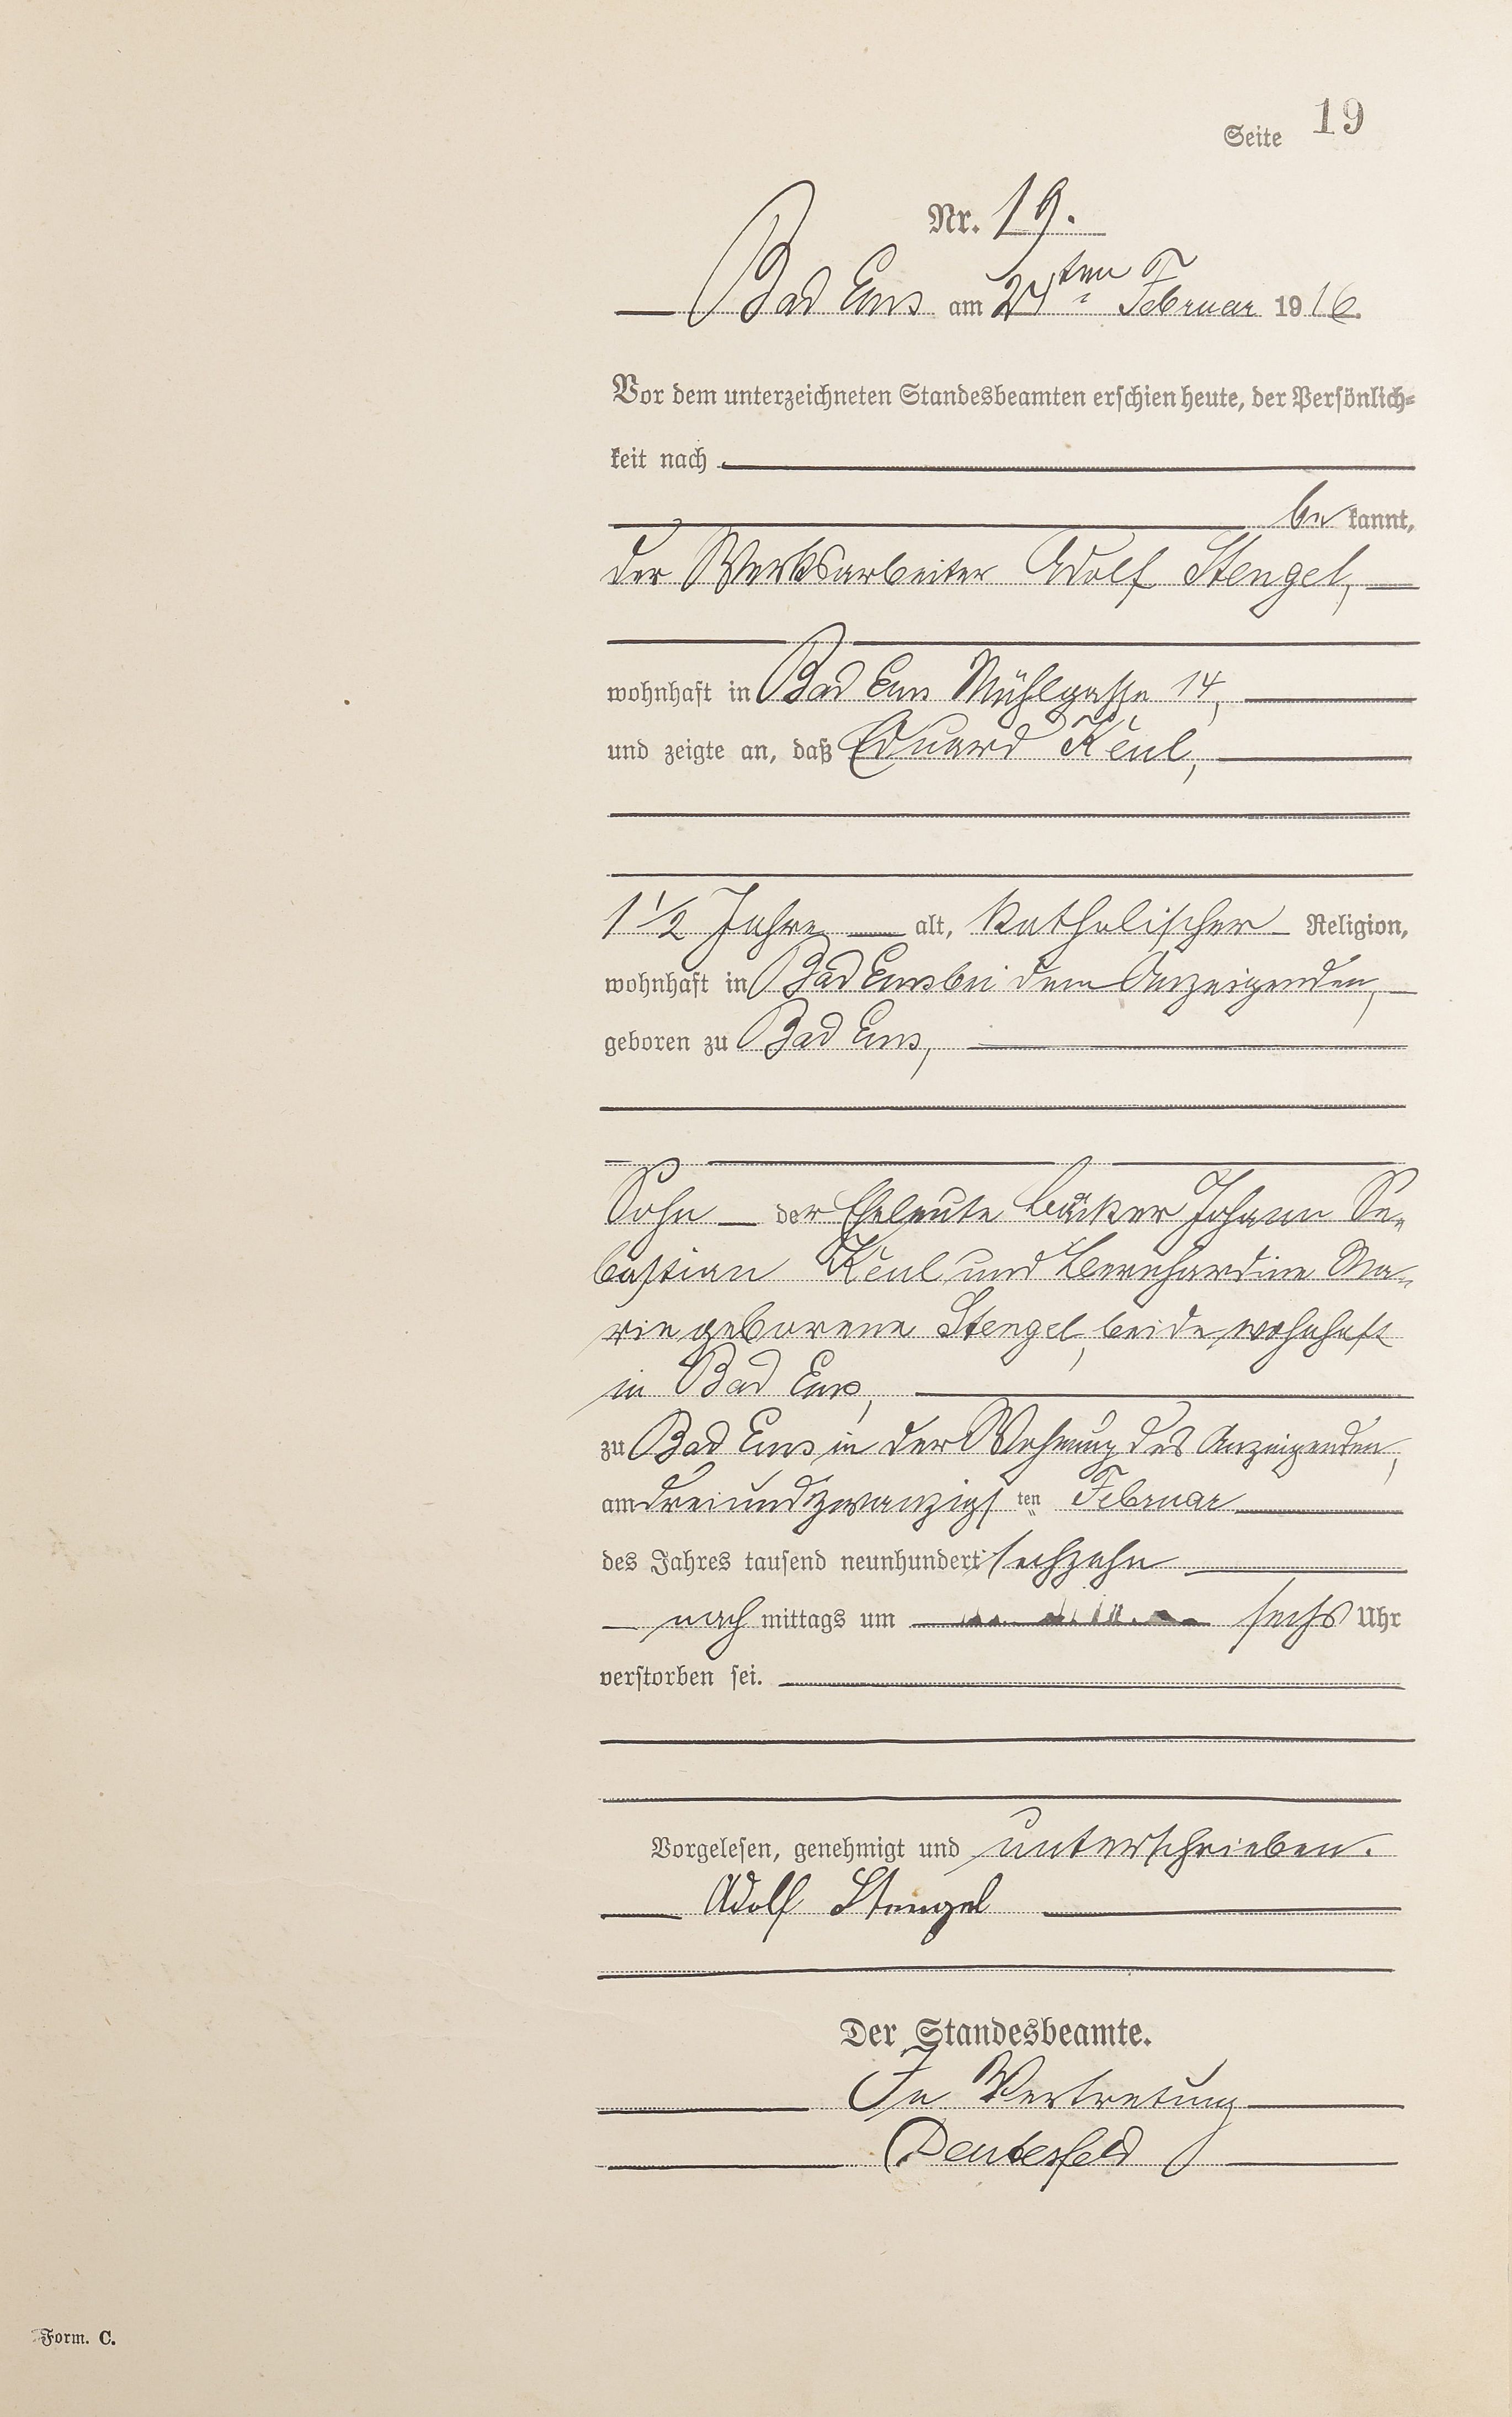 Seite 19
Nr. 19.
Bad Ems am 24ten Februar 1916.
Vor dem unterzeichneten Standesbeamten erschien heute, der Persönlich-
keit nach
be kannt,
der Werksarbeiter Adolf Stengel,
wohnhaft in Bad Ems Mühlgasse 14,
und zeigte an, daß Eduard Keul,
1 1/2 Jahre alt, katholischer Religion,
wohnhaft in Bad Ems bei dem Anzeigenden,
geboren zu Bad Ems,
Sohn der Eheleute Bäcker Johann Se-
bastian Keul und Bernhardine Ma-
rie geborene Stengel, beide wohnhaft
in Bad Ems,
zu Bad Ems in der Wohnung des Anzeigenden,
am dreiundzwanzigsten Februar
des Jahres tausend neunhundert sechzehn
nach mittags um sechs Uhr
verstorben sei.
Vorgelesen, genehmigt und unterschrieben.
Adolf Stengel
Der Standesbeamte.
In Vertretung
Form. C.